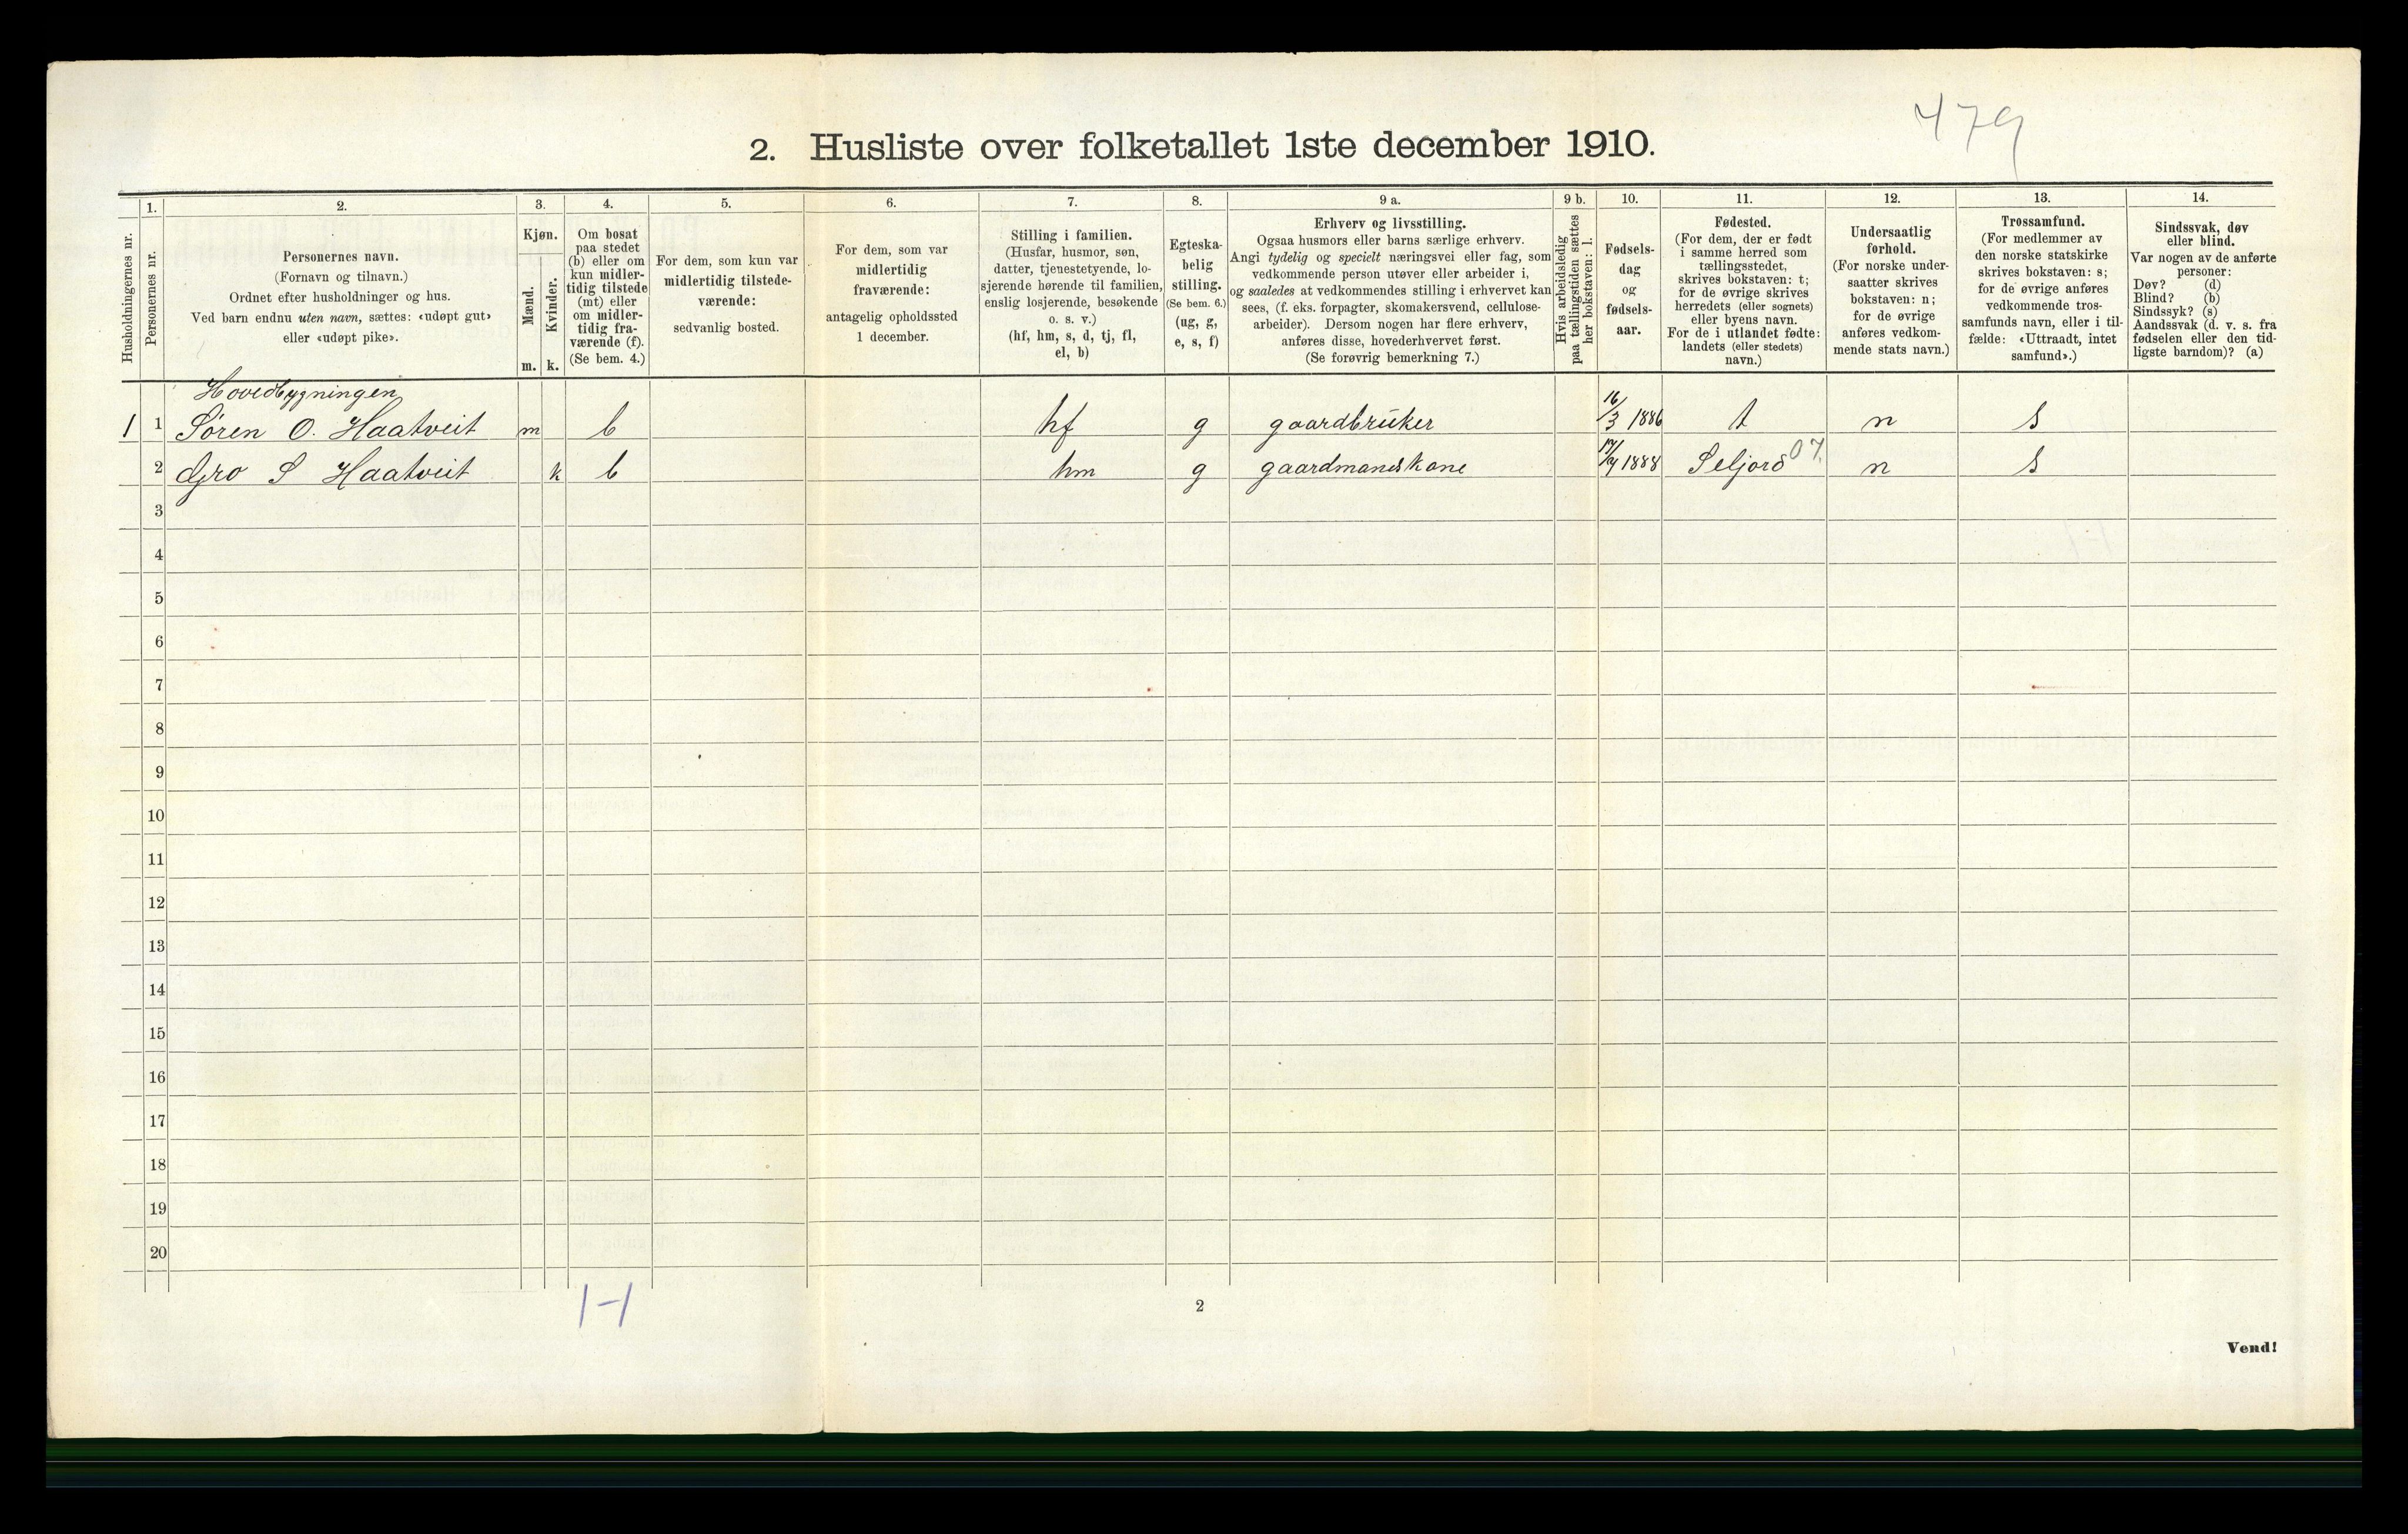 479
2. Husliste over folketallet 1ste december 1910.
Husholdningernes nr.
1.
Personernes nr.
2.
Personernes navn.
(Fornavn og tilnavn.)
Ordnet efter husholdninger og hus.
Ved barn endnu uten navn, sættes: «udøpt gut»
eller «udøpt pike».
3.
Kjøn.
Mænd.
Kvinder.
m. k.
4.
Om bosat
paa stedet
(b) eller om
kun midler-
tidig tilstede
(mt) eller
om midler-
tidig fra-
værende (f).
(Se bem. 4.)
5.
For dem, som kun var
midlertidig tilstede-
værende:
sedvanlig bosted.
6.
For dem, som var
midlertidig
fraværende:
antagelig opholdssted
1 december.
7.
Stilling i familien.
(Husfar, husmor, søn,
datter, tjenestetyende, lo-
sjerende hørende til familien,
enslig losjerende, besøkende
o. s. v.)
(hf, hm, s, d, tj, fl,
el, b)
8.
Egteska-
belig
stilling.
(Se bem. 6.)
(ug, g,
e, s, f)
9 a.
Erhverv og livsstilling.
Ogsaa husmors eller barns særlige erhverv.
Angi tydelig og specielt næringsvei eller fag, som
vedkommende person utøver eller arbeider i,
og saaledes at vedkommendes stilling i erhvervet kan
sees, (f. eks. forpagter, skomakersvend, cellulose-
arbeider). Dersom nogen har flere erhverv,
anføres disse, hovederhvervet først.
(Se forøvrig bemerkning 7.)
9 b.
Hvis arbeidsledig
paa tællingstiden sættes
her bokstaven: l.
10.
Fødsels-
dag
og
fødsels-
aar.
11.
Fødested.
(For dem, der er født
i samme herred som
tællingsstedet,
skrives bokstaven: t;
for de øvrige skrives
herredets (eller sognets)
eller byens navn.
For de i utlandet fødte:
landets (eller stedets)
navn.)
12.
Undersaatlig
forhold.
(For norske under-
saatter skrives
bokstaven: n;
for de øvrige
anføres vedkom-
mende stats navn.)
13.
Trossamfund.
(For medlemmer av
den norske statskirke
skrives bokstaven: s;
for de øvrige anføres
vedkommende tros-
samfunds navn, eller i til-
fælde: «Uttraadt, intet
samfund».)
14.
Sindssvak, døv
eller blind.
Var nogen av de anførte
personer:
Døv? (d)
Blind? (b)
Sindssyk? (s)
Aandssvak (d. v. s. fra
fødselen eller den tid-
ligste barndom)? (a)
Hovedbygningen
1 1 Søren O. Haatveit m b hf g gaardbruker 16/3 1886 t n s
2 Gro S Haatveit k b hm g gaardmandskone 17/9 1888 Seljord 07. n s
3
4
5
6
7
8
9
10
11
12
13
14
15
16
17
18
19
20
1-1
2
Vend!